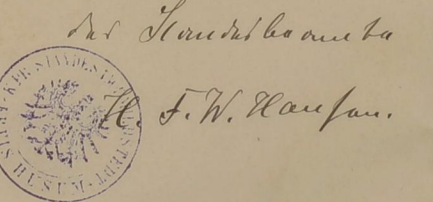 der Standesbeamte
H. F. W. Hansen.
HUSUM